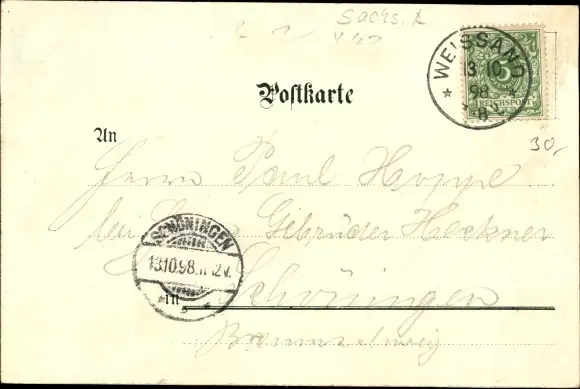 Sachs. A
WEISSAND
13 10
98
8
5
REICHSPOST
30,-
Postkarte
An
Herrn Paul Hoppe
Gebrüder Heckner
SCHÖNINGEN
13.10.98. 11-12 V.
Schöningen
In
Braunschweig